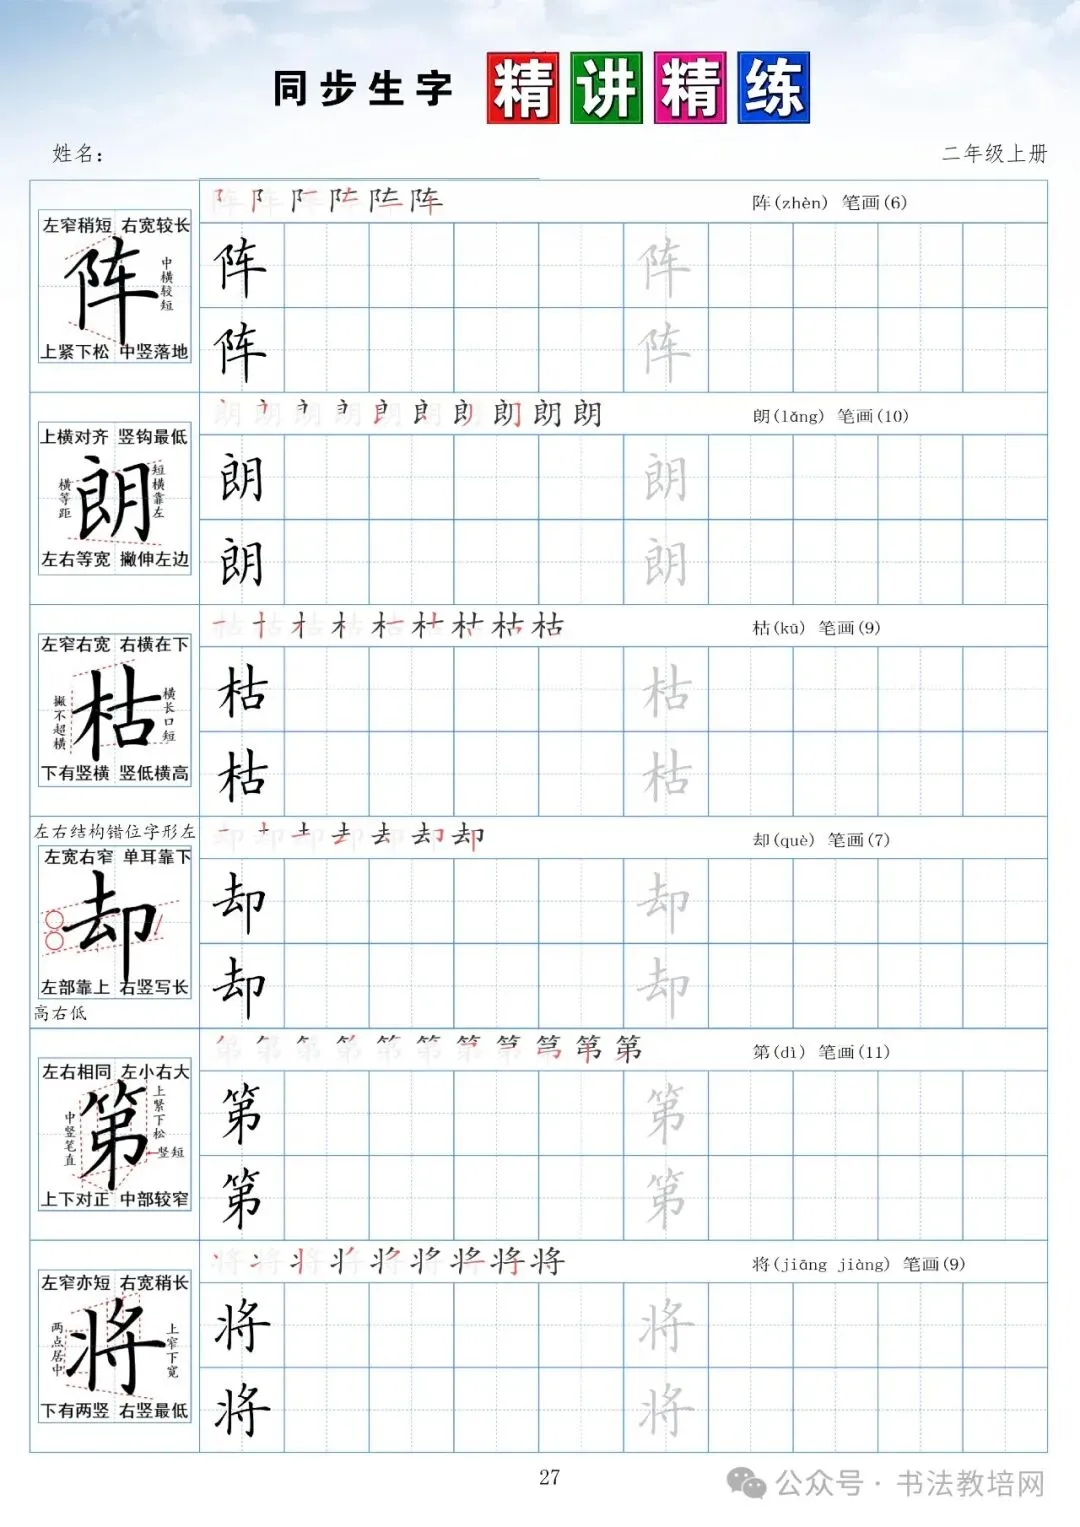 同步生字 精讲精练
姓名：
二年级上册
左窄稍短 右宽较长
阵
中横较短
上紧下松 中竖落地
阵(zhèn) 笔画(6)
阵 阵
阵 阵
上横对齐 竖钩最低
朗
横等距
短横靠左
左右等宽 撇伸左边
朗(lǎng) 笔画(10)
朗 朗
朗 朗
左窄右宽 右横在下
枯
撇不超横
横长口短
下有竖横 竖低横高
枯(kū) 笔画(9)
枯 枯
枯 枯
左右结构错位字形左
左宽右窄 单耳靠下
却
左部靠上 右竖写长
高右低
却(què) 笔画(7)
却 却
却 却
左右相同 左小右大
第
中竖笔直
上紧下松
竖短
上下对正 中部较窄
第(dì) 笔画(11)
第 第
第 第
左窄亦短 右宽稍长
将
两点居中
上窄下宽
下有两竖 右竖最低
将(jiāng jiàng) 笔画(9)
将 将
将 将
27
公众号·书法教培网